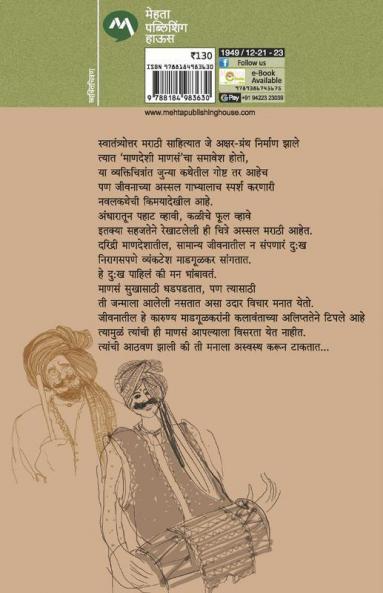 मेहता
पब्लिशिंग
हाऊस
व्यक्तिचित्रण
₹130
ISBN 9788184983630
9 788184 983630
1949 / 12-21 - 23
Follow us
e-Book
Available
9789386745675
G Pay +91 94223 23039
www.mehtapublishinghouse.com
स्वातंत्र्योत्तर मराठी साहित्यात जे अक्षर-ग्रंथ निर्माण झाले
त्यात 'माणदेशी माणसं'चा समावेश होतो,
या व्यक्तिचित्रांत जुन्या कथेतील गोष्ट तर आहेच
पण जीवनाच्या अस्सल गाभ्यालाच स्पर्श करणारी
नवलकथेची किमयादेखील आहे.
अंधारातून पहाट व्हावी, कळीचे फूल व्हावे
इतक्या सहजतेने रेखाटलेली ही चित्रे अस्सल मराठी आहेत.
दरिद्री माणदेशातील, सामान्य जीवनातील न संपणारं दुःख
निरागसपणे व्यंकटेश माडगूळकर सांगतात.
हे दुःख पाहिलं की मन भांबावतं.
माणसं सुखासाठी धडपडतात, पण त्यासाठी
ती जन्माला आलेली नसतात असा उदार विचार मनात येतो.
जीवनातील हे कारुण्य माडगूळकरांनी कलावंताच्या अलिप्ततेने टिपले आहे
त्यामुळं त्यांची ही माणसं आपल्याला विसरता येत नाहीत.
त्यांची आठवण झाली की ती मनाला अस्वस्थ करून टाकतात...